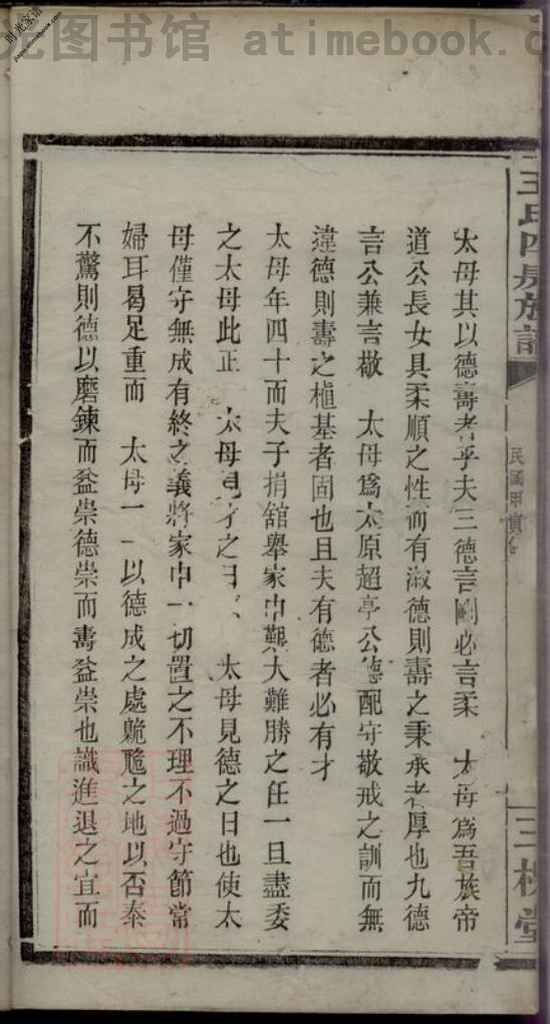 光图书馆 atimebook.c
王氏四房族譜
民國甲寅
三槐堂
太母其以德壽者乎夫三德言剛必言柔 太母爲吾族帝
道公長女具柔順之性而有淑德則壽之秉承者厚也九德
言公兼言敬 太母爲太原超亭公德配守敬戒之訓而無
違德則壽之植基者固也且夫有德者必有才
太母年四十而夫子捐舘舉家中艱大難勝之任一旦盡委
之太母此正 太母見才之日 太母見德之日也使太
母僅守無成有終之義將家中一切置之不理不過守節常
婦耳曷足重而 太母一一以德成之處臲卼之地以否泰
不驚則德以磨鍊而益崇德崇而壽益崇也識進退之宜而